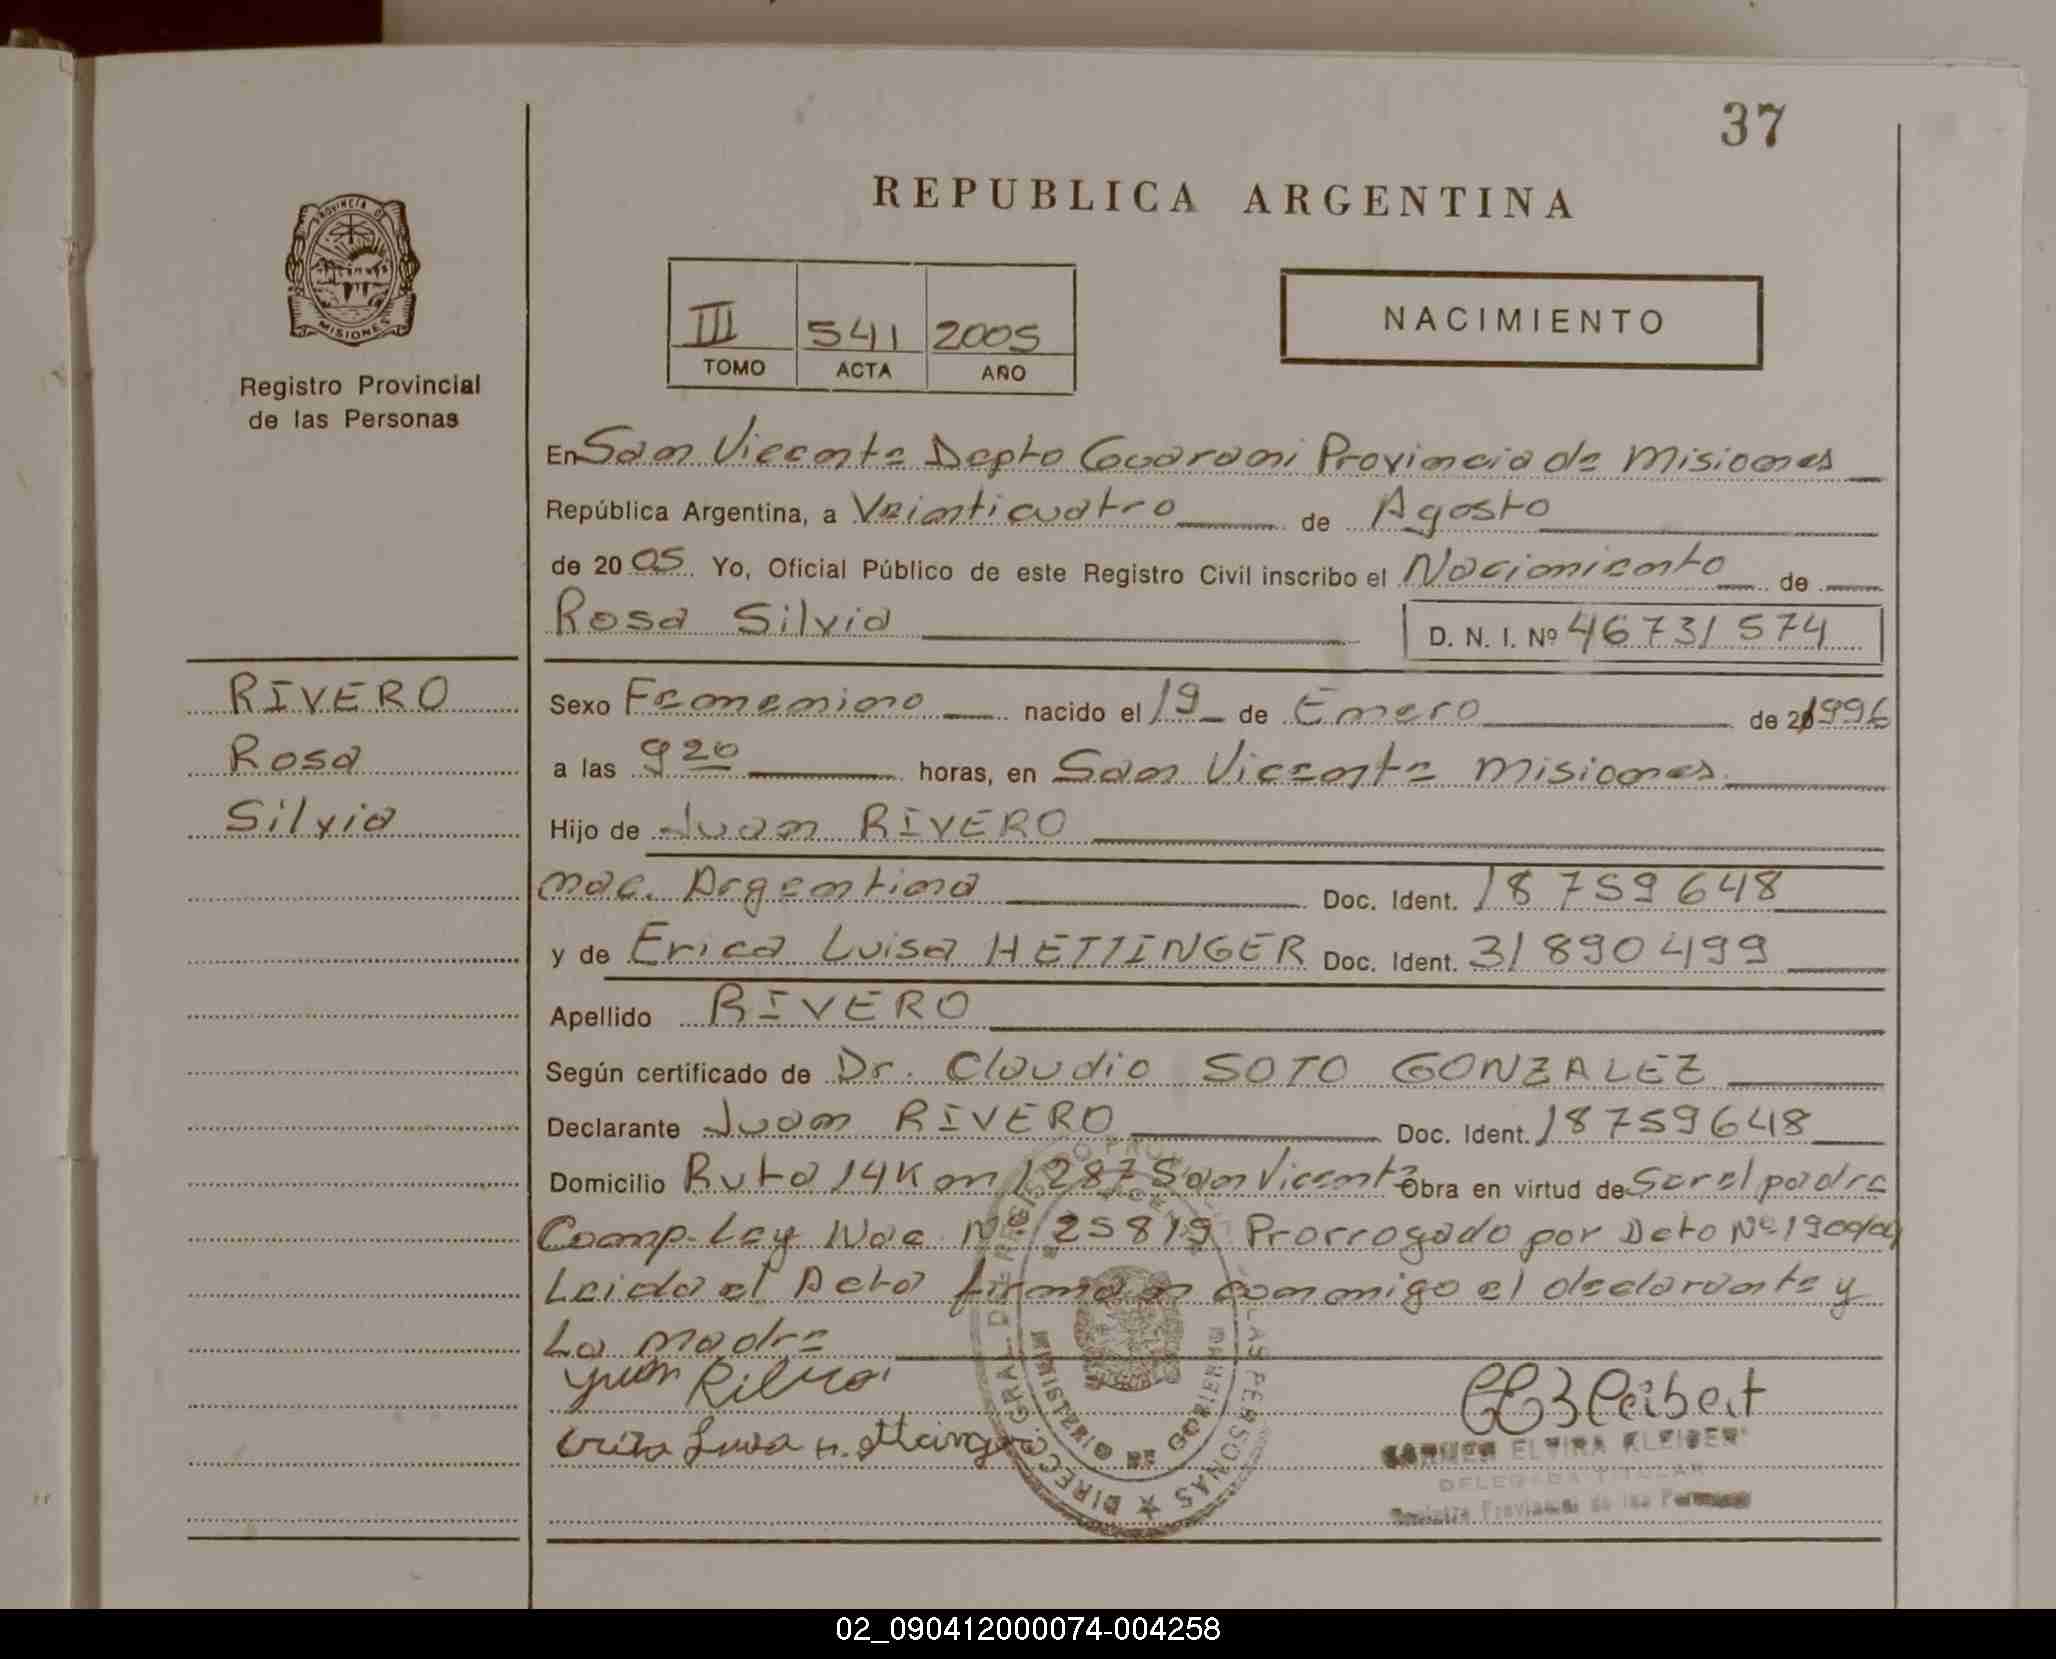 37
REPUBLICA ARGENTINA
PROVINCIA DE
MISIONES
Registro Provincial
de las Personas
III 541 2005
TOMO ACTA AÑO
NACIMIENTO
En San Vicente Depto Guarani Provincia de Misiones
República Argentina, a Veinticuatro de Agosto
de 2005 Yo, Oficial Público de este Registro Civil inscribo el Nacimiento de
Rosa Silvia D. N. I. Nº 46731574
RIVERO
Rosa
Silvia
Sexo Femenino nacido el 19 de Enero de 1996
a las 9 20 horas, en San Vicente Misiones
Hijo de Juan RIVERO
nac. Argentina Doc. Ident. 18759648
y de Erica Luisa HETTINGER Doc. Ident. 31890499
Apellido RIVERO
Según certificado de Dr. Claudio SOTO GONZALEZ
Declarante Juan RIVERO Doc. Ident. 18759648
Domicilio Ruta 14 Km 1287 San Vicente Obra en virtud de Ser el padre
Comp. Ley Nac Nº 25819 Prorrogado por Dcto Nº 1900/04
Leida el Acta firman conmigo el declarante y
La madre
DIREC. GRAL. DE REGISTRO PROVINCIAL DE LAS PERSONAS
MINISTERIO DE GOBIERNO
CARMEN ELVIRA KLEIBER
DELEGADA TITULAR
Registro Provincial de las Personas
02_090412000074-004258